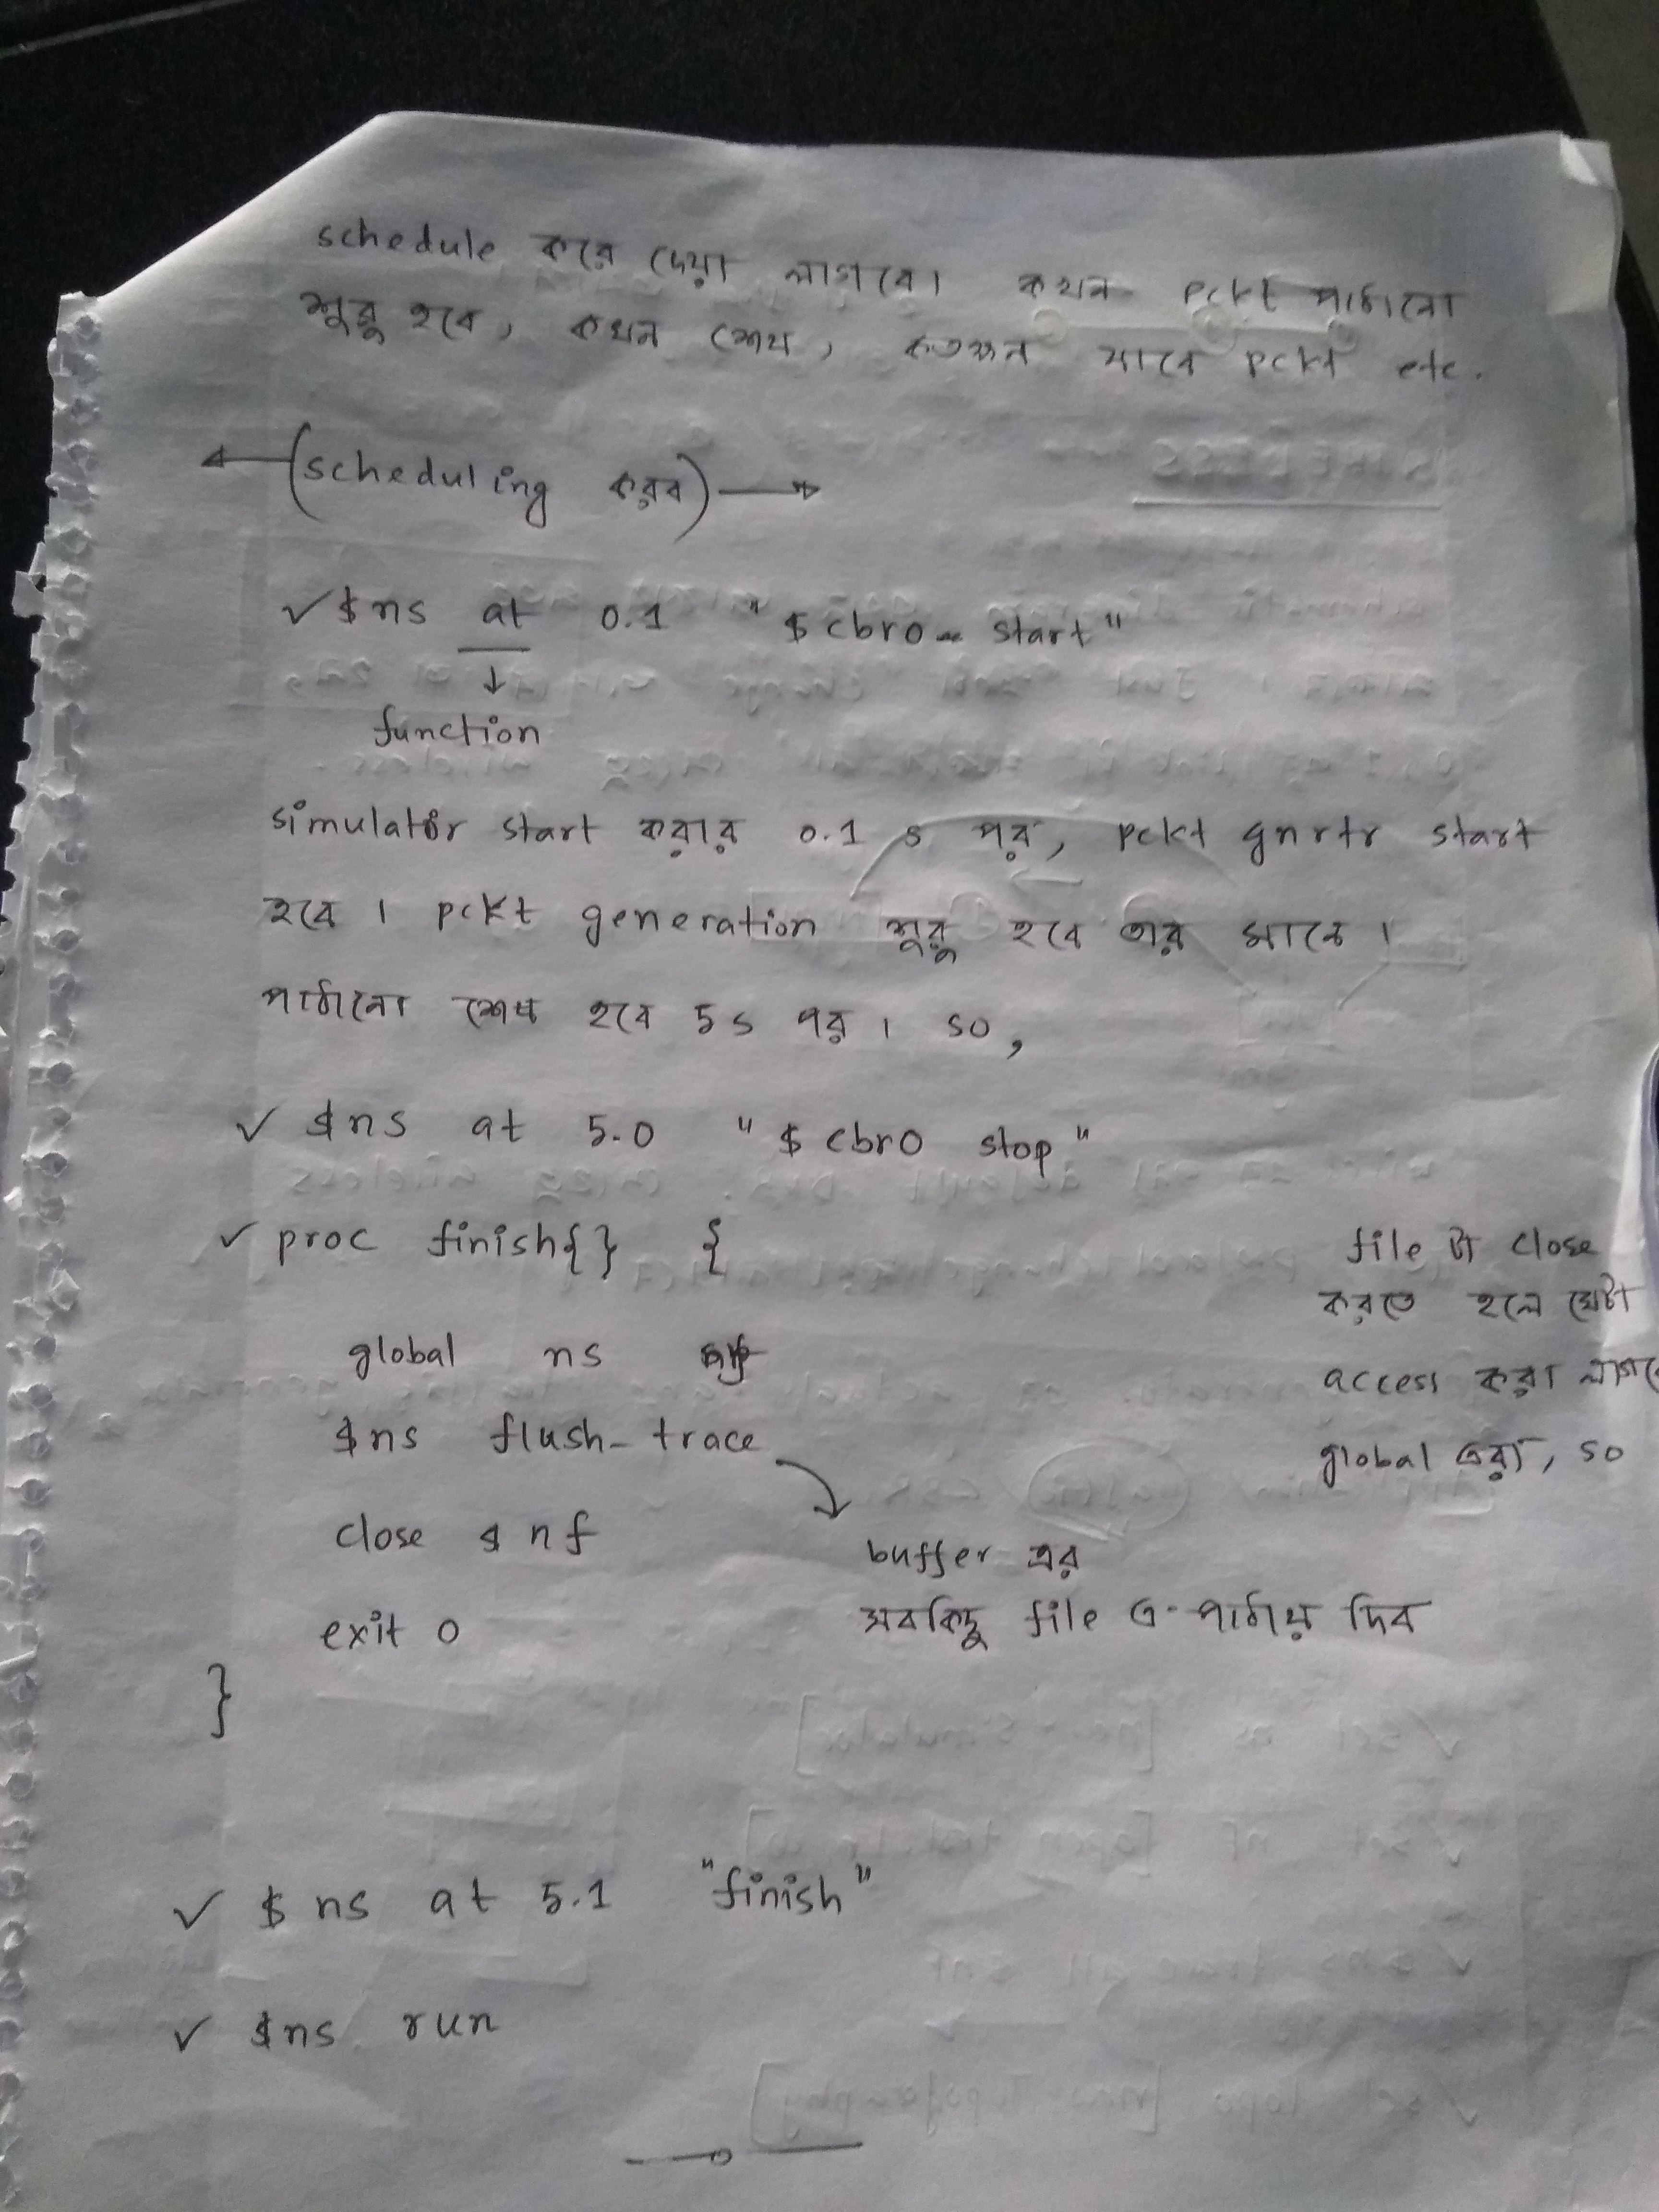 schedule করে দেয়া লাগবে। কখন pckt পাঠানো
শুরু হবে, কখন শেষ, কতক্ষন যাবে pckt etc.
(scheduling করব)
✓ $ns at 0.1 "$cbr0 start"
↓
function
simulator start করার 0.1 s পর, pckt gnrtr start
হবে। pckt generation শুরু হবে তার মানে।
পাঠানো শেষ হবে 5s পর। so,
✓ $ns at 5.0 "$cbr0 stop"
✓ proc finish{} {
global ns
$ns flush-trace
close $nf
exit 0
}
file টা close
করতে হলে সেটা
access করা লাগবে
global এরা, so
buffer এর
সবকিছু file এ পাঠায় দিব
✓ $ns at 5.1 "finish"
✓ $ns run